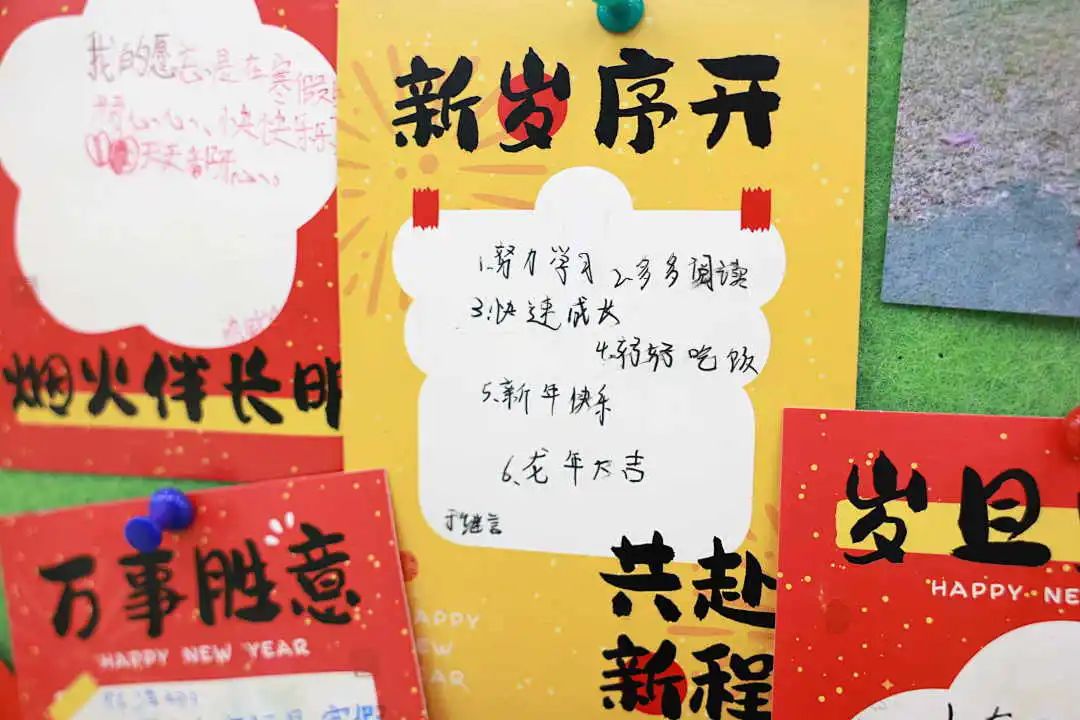 我的愿忘是在寒假
快快乐乐
天天
烟火伴长明
新岁序开
1.努力学习 2.多多阅读
3.快速成长
4.
吃饭
5.新年快乐
6.龙年大吉
于继言
共赴
新程
HAPPY
NEW
YEAR
万事胜意
HAPPY NEW YEAR
岁旦
HAPPY NE